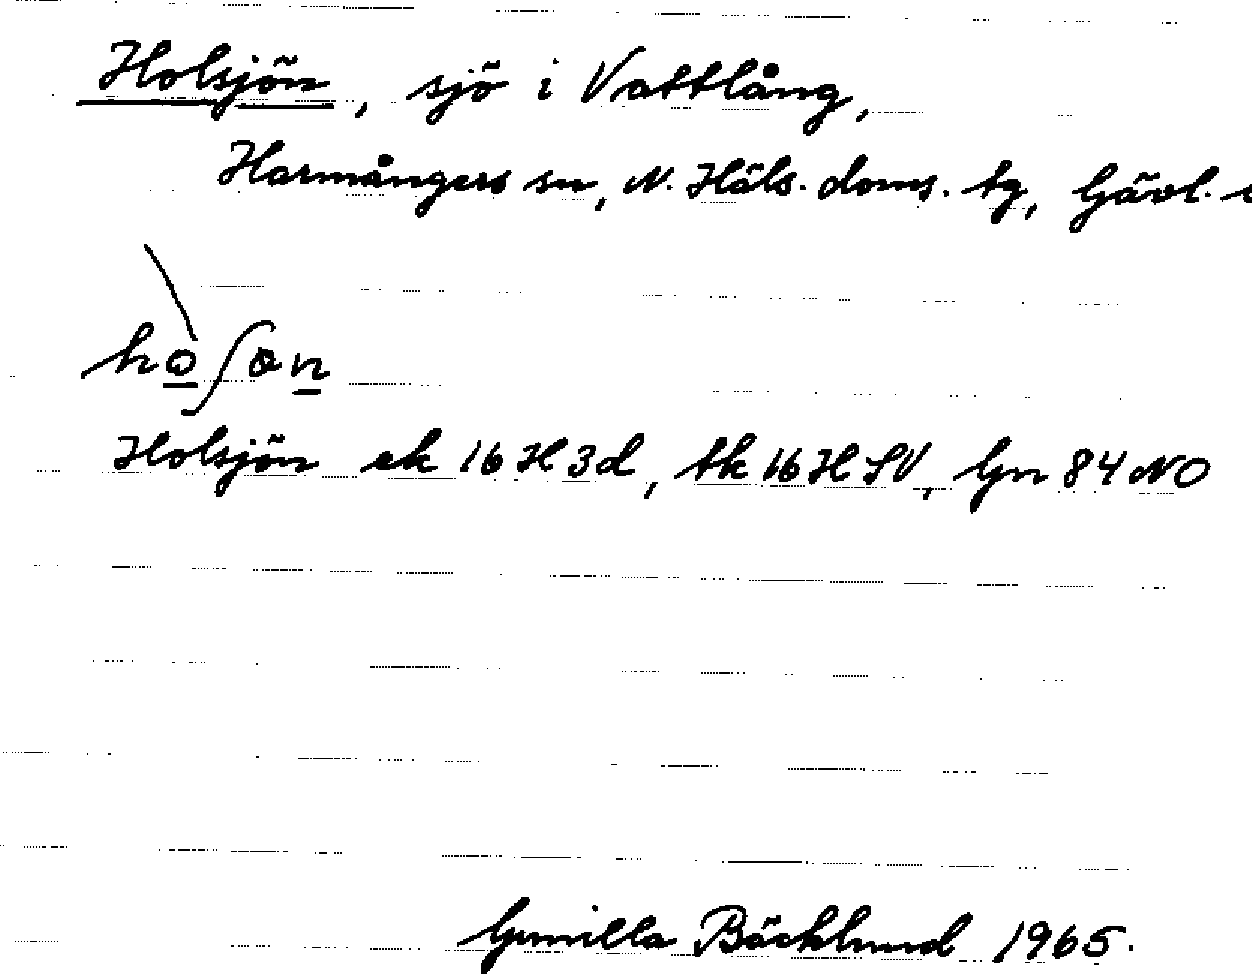 Holsjön, sjö i Vattlång,
Harmångers sn, N. Häls. doms. tg, Gävl.
hoʃɵn
Holsjön ek 16 H 3d, tk 16 H SV, Gn 84 NO
Gunilla Bäcklund 1965.